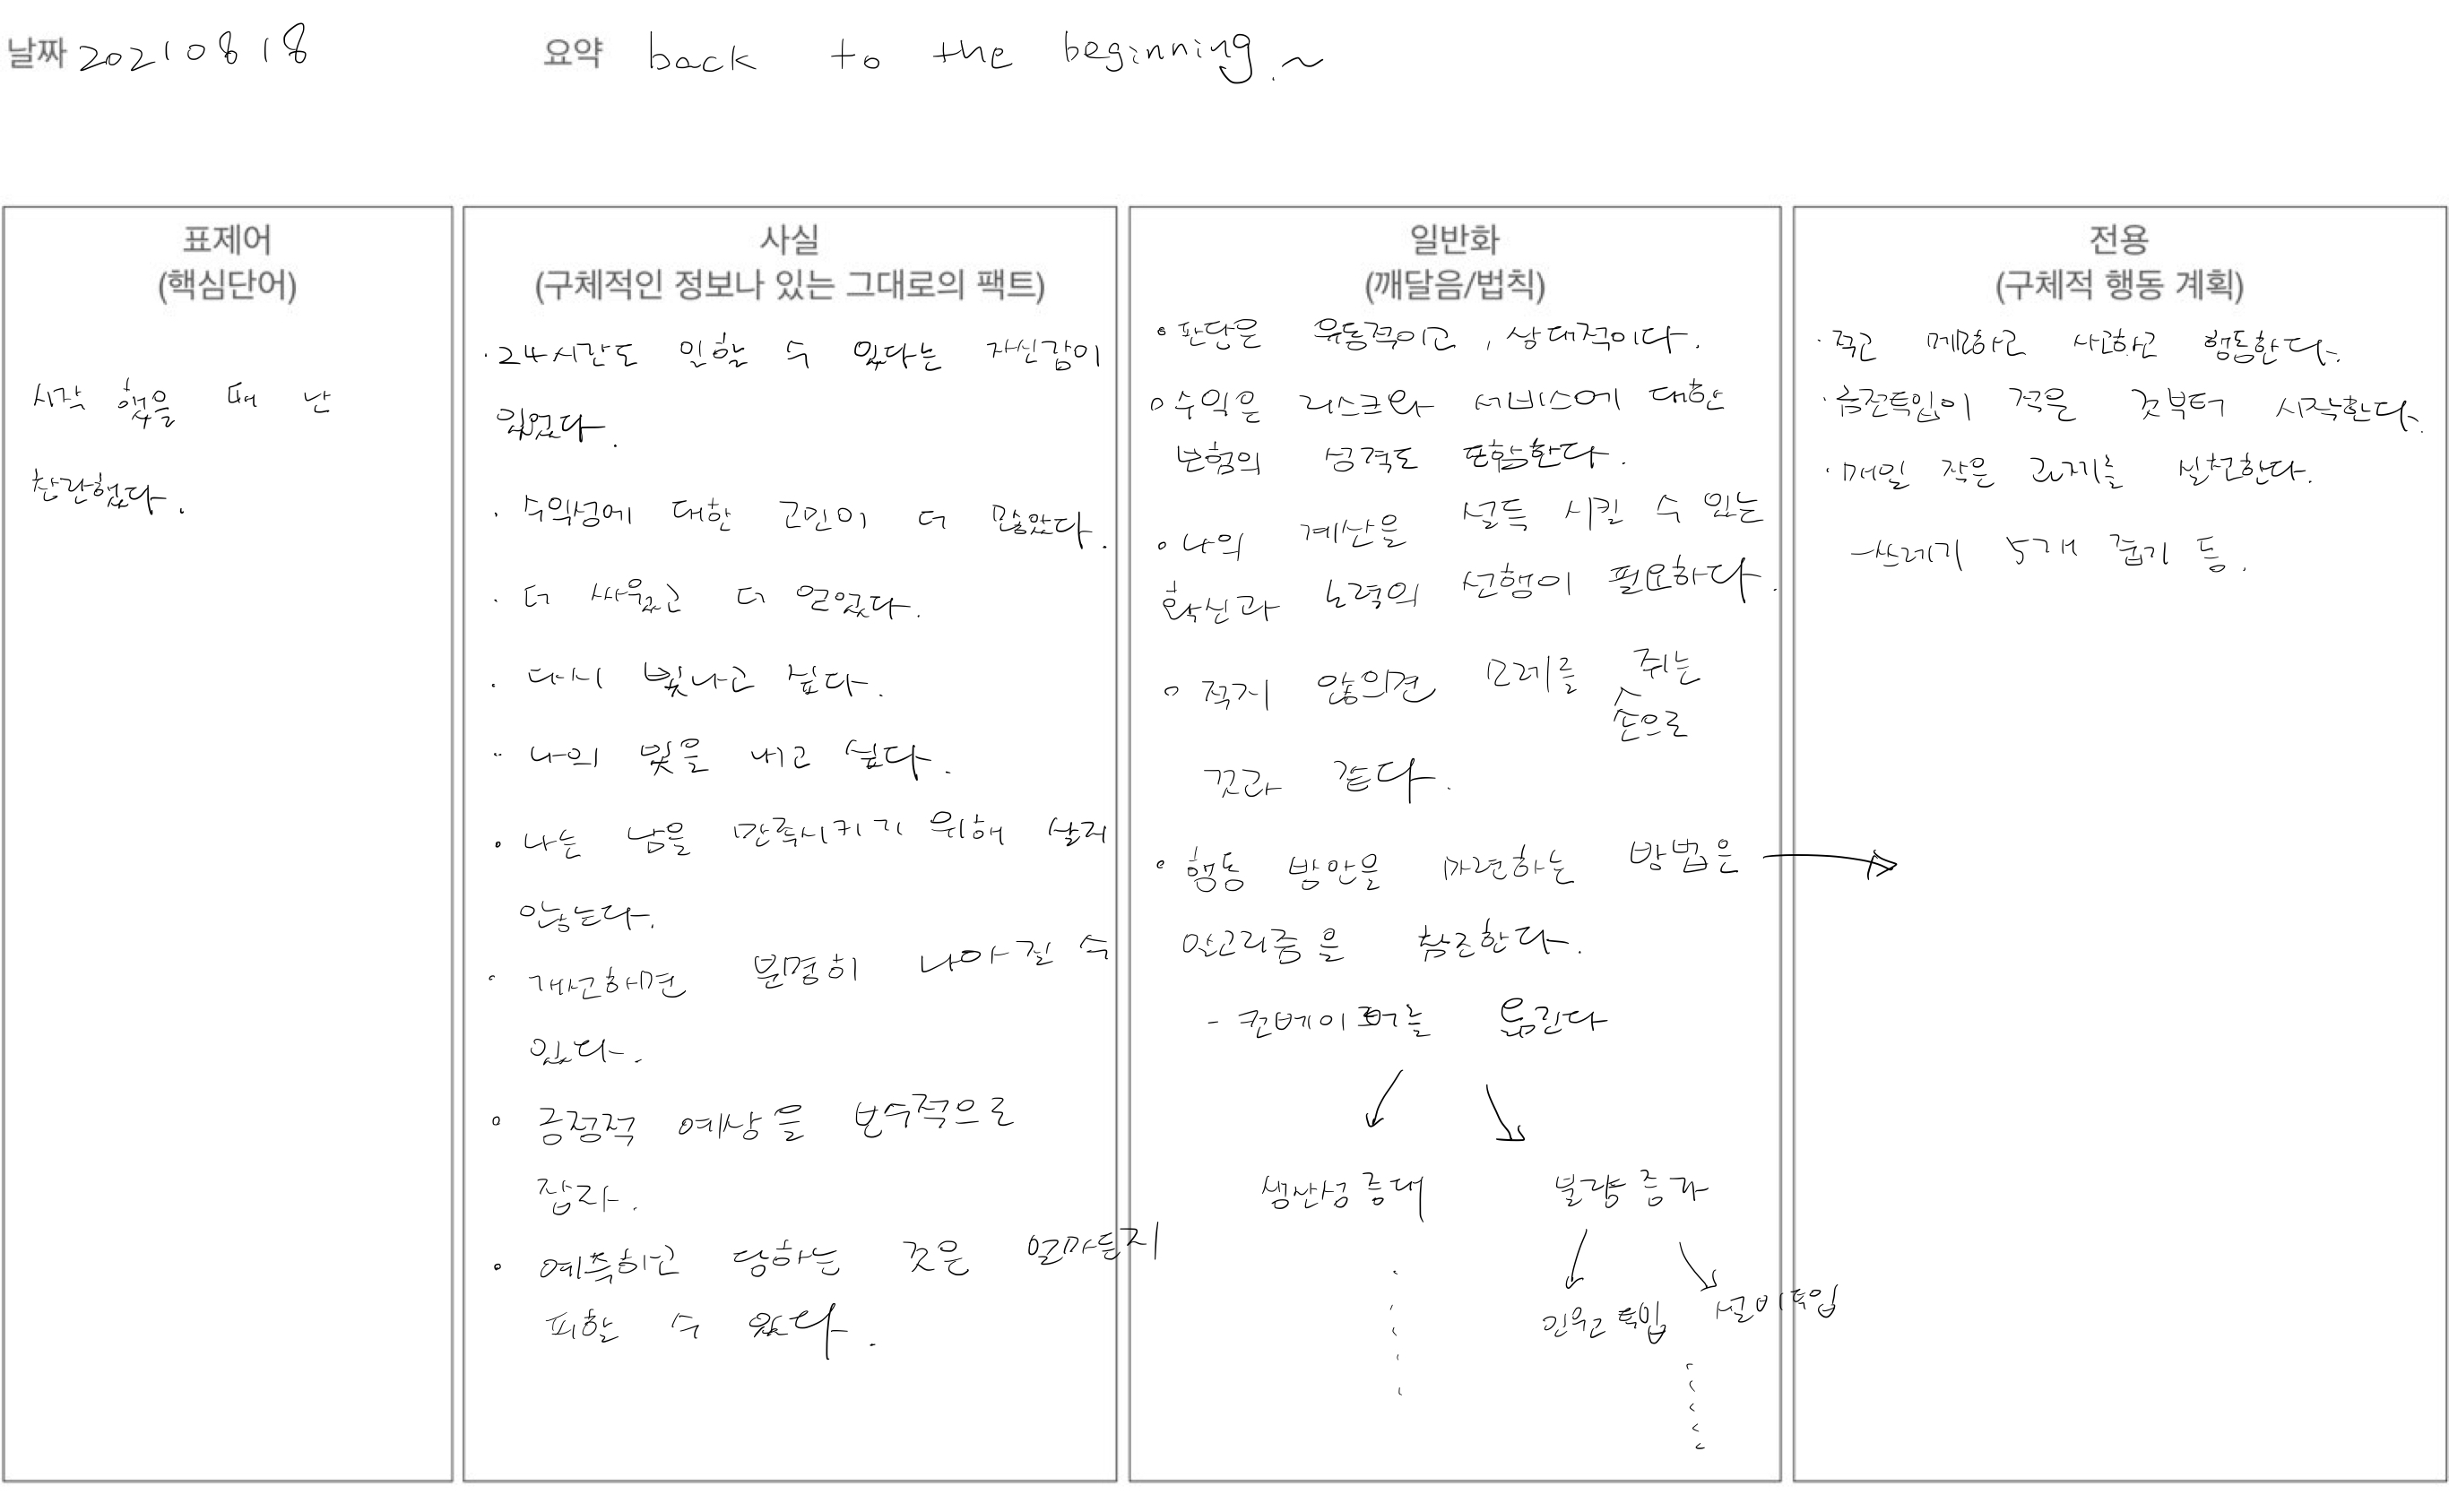 날짜 20210818
요약 back to the beginning.~
표제어
(핵심단어)
시작 했을 때 난
찬란했었다.
사실
(구체적인 정보나 있는 그대로의 팩트)
· 24시간도 일할 수 있다는 자신감이
있었다.
· 수익성에 대한 고민이 더 많았다.
· 더 싸웠고 더 얻었다.
· 다시 빛나고 싶다.
· 나의 빛을 내고 싶다.
· 나는 남을 만족시키기 위해 살지
않는다.
· 개선하면 분명히 나아질 수
있다.
· 긍정적 예상을 보수적으로
잡자.
· 예측하고 당하는 것은 얼마든지
피할 수 있었다.
일반화
(깨달음/법칙)
· 판단은 유동적이고, 상대적이다.
· 수익은 리스크와 서비스에 대한
보험의 성격도 포함한다.
· 나의 계산을 설득 시킬 수 있는
확신과 노력의 선행이 필요하다.
· 적지 않으면 모레를 쥐는
손으로
것과 같다.
· 행동 방안을 마련하는 방법은 →
알고리즘을 참조한다.
- 컨베이어를 옮긴다
생산성 증대 불량 증가
인원 투입 설비투입
전용
(구체적 행동 계획)
· 적고 메모하고 사고하고 행동한다.
· 금전투입이 적은 것부터 시작한다.
· 매일 작은 과제를 실천한다.
- 쓰레기 5개 줍기 등.